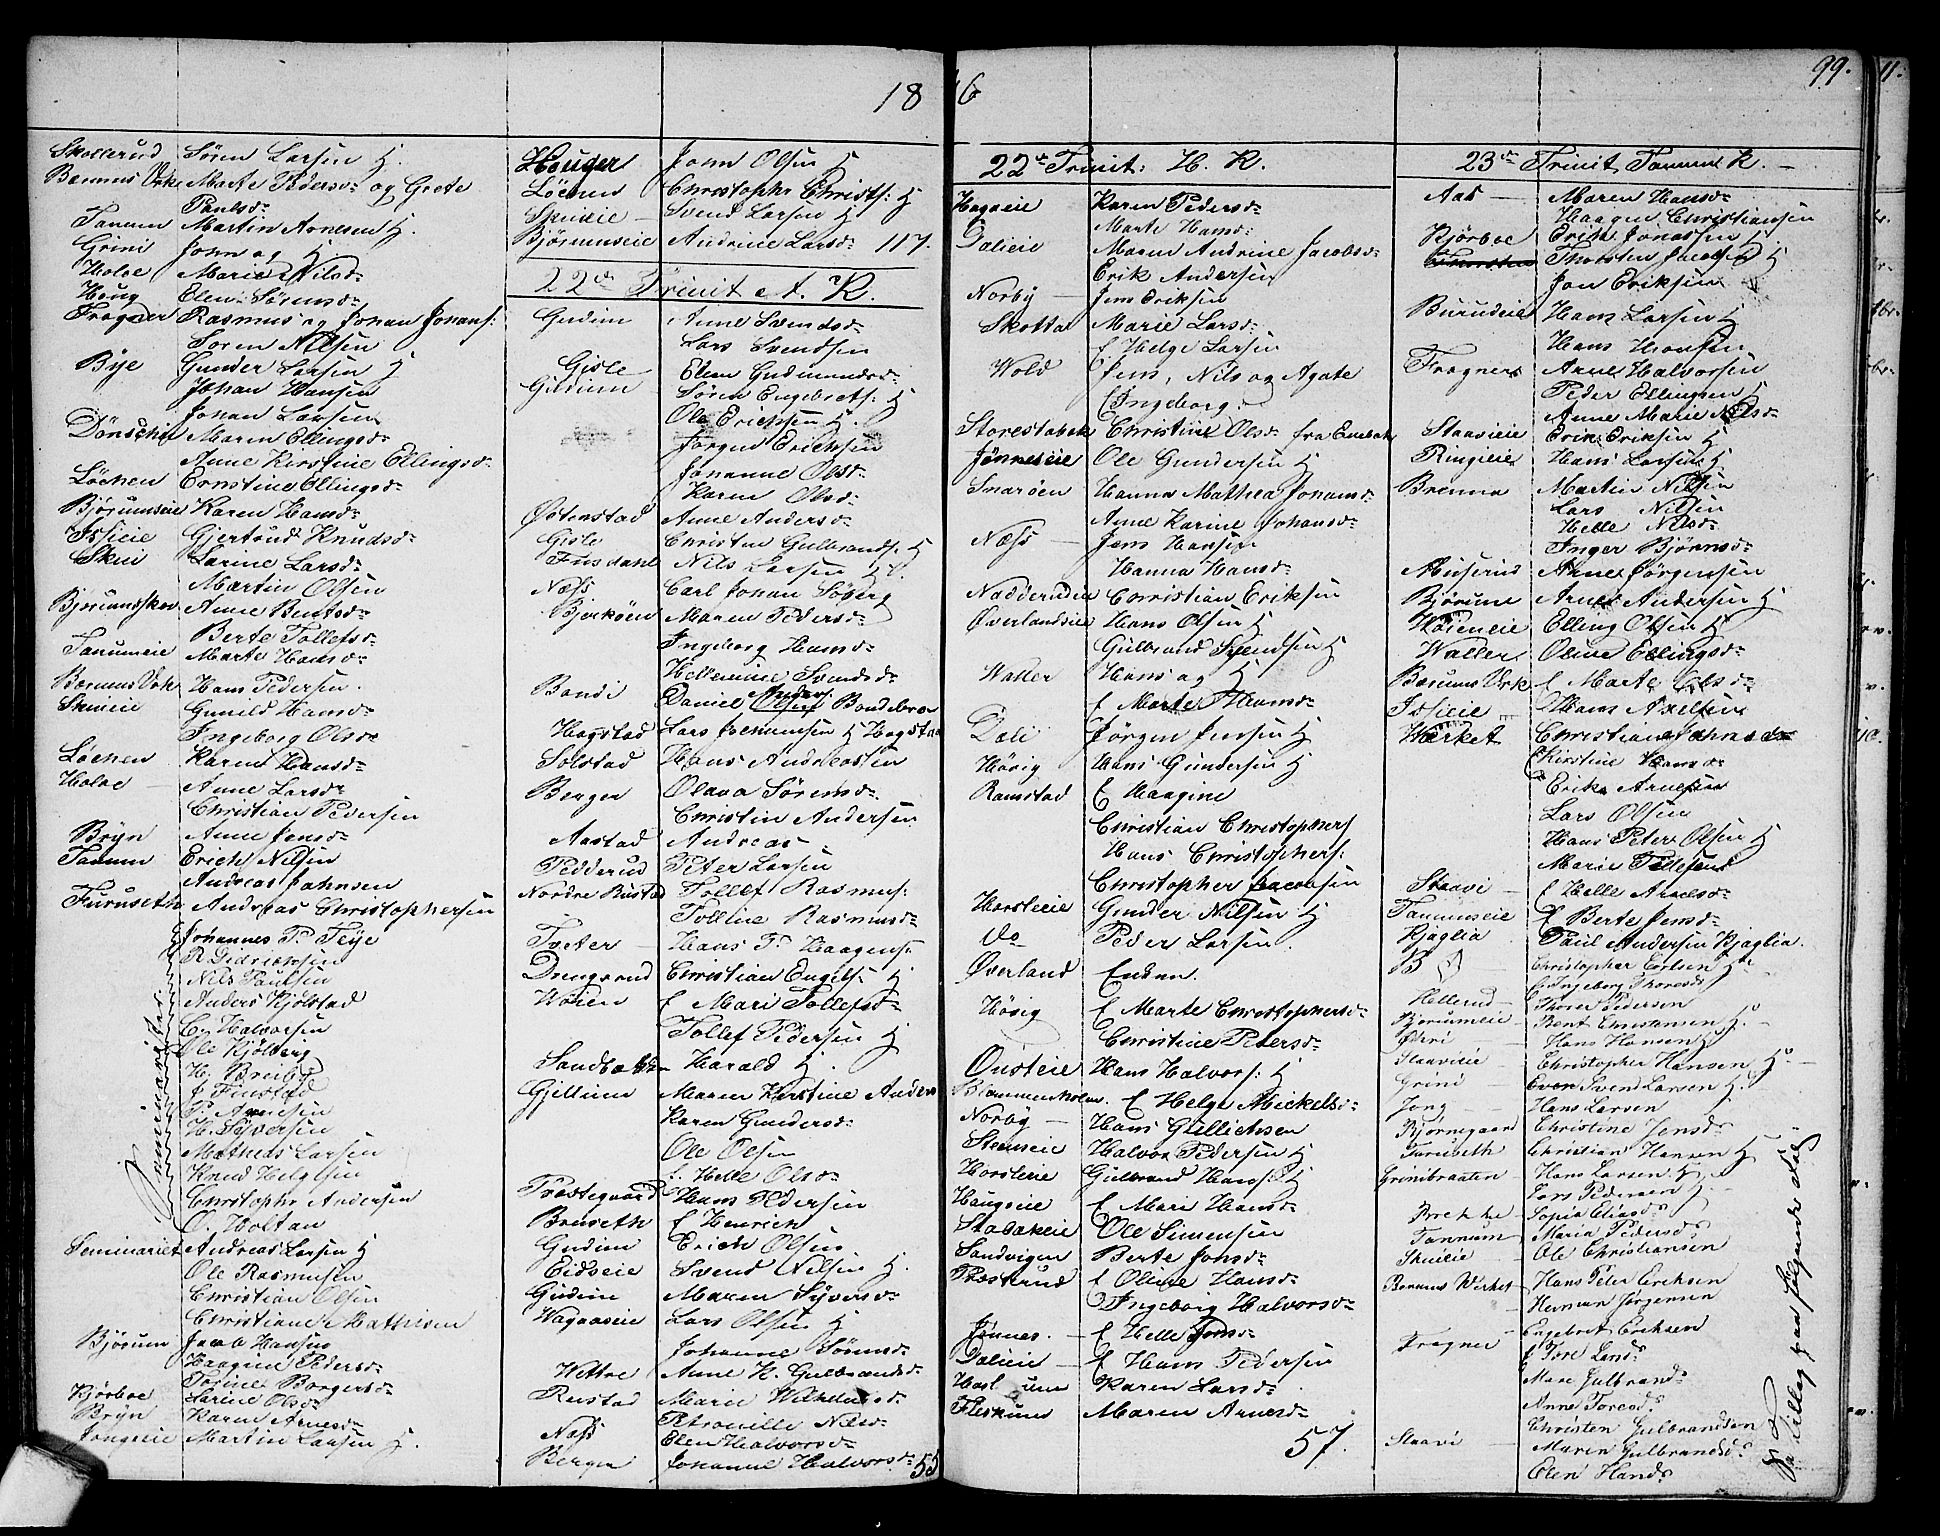 18 46
99.
Skollerud Søren Larsen H.
Bærums Verk Marte Pedersd. og Grete
Paulsd.
Tanum Martin Arnesen H.
Grini John og H
Holoe Marie Nilsd.
Haug Elen Sørensd.
Frogner Rasmus og Johan Johans:
Søren Nilsen
Bye Gunder Larsen H
Johan Hansen
Johan Larsen
Maren Ellingsd.
Anne Kirstine Ellingsd.
Løchen Ernstine Ellingsd.
Bjørumseie Karen Hansd.
Isieie Gjertrud Knudsd.
Skui Larine Larsd.
Martin Olsen
Anne Bentsd.
Berte Tollefsd.
Tanumeie Marte Hansd.
Bærums Verk Hans Pedersen.
Skuieie Gunild Hansd.
Ingeborg Olsd.
Løchen Karen Hansd.
Holoe Anne Larsd.
Christian Pedersen
Bryn Anne Jensd.
Tanum Erich Nilsen
Andreas Jahnsen
Furuseth Andreas Christophersen
Seminarister
Johannes P. Teye
R. Didriksen
Nils Paulsen
Anders Kjølstad
C. Halvorsen
Ole Kjølberg
H. Breiby
J. Finstad
P. Arnesen
H. Syversen
Mathias Larsen
Knud Helgesen
Christophr Andersen
O. Holtan
Seminariet Andreas Larsen H
Ole Rasmusen
Christian Olsen
Christiane Mathisen
Bjørum Jacob Hansen
Haagine Pedersd.
Torine Borgersd.
Kjørboe Larine Olsd.
Bryn Karen Arnesd.
Jongseie Martin Larsen H.
Hauger John Olsen H
Løchen Christophr Christs: H
Skuieie Svend Larsen H
Bjørumseie Andrine Larsd. 117.
22de Trinit A. K.
Gudim Anne Svendsd.
Lars Svendsen
Gisle Elen Gudmundsd.
Gudim Søren Engebrets: H
Ole Erichsen H.
Jørgen Erichsen
Johanne Olsd.
Karen Olsd.
Østenstad Anne Andersd.
Gisle Christen Gulbrands: H
Fusdahl Nils Larsen H.
Næss Carl Johan Søberg
Bjerkøen Maren Pedersd.
Ingeborg Hansd.
Hellemine Svendsd.
Bondi Daniel Olsen Anders: Bondebraa
Hogstad Lars Joensen H Hogstad
Solstad Hans Andreassen
Berger Olava Sørensd.
Christin Andersen
Aastad Andreas
Pedderud Peter Larsen
Nordre Rustad Tollef Rasmus:
Tolline Rasmusd.
Tveter Hans P. Haagens:
Drengsrud Christian Engels: H
Woien f Mari Tollefsd.
Tollef Pedersen H
Sandbakken Harald H.
Gjellum Maren Kirstine Anders
Karen Gundersd.
Ole Olsen
f. Helle Olsd.
Præstegaard Hans Pedersen
Bruseth f Henrich
Gudim Erich Olsen
Eidseie Svend Nilsen H.
Gudim Maren Syversd.
Wagaaseie Lars Olsen H
Johanne Sørensd.
Hettre Anne K. Gulbrandsd.
Rustad Marie Wilhelmsd.
Næss Petronille Nilsd.
Elen Halvorsd.
Berger Johanne Halvorsd. 55
22de Trinit: H. K.
Hagaeie Karen Pedersd.
Marte Hansd.
Dalieie Maren Andrine Jacobsd.
Erik Andersen
Norby Jens Eriksen
Skotta Marie Larsd.
f Helge Larsen
Wold Jens, Nils og Agate
f Ingeborg.
Storestabek Christine Olsd. fra Enebak
Jønneseie Ole Gundersen H
Snarøen Hanna Mathea Johansd.
Anne Karine Johansd.
Næss Jens Hansen
Hanna Hansd.
Nadderudeie Christian Eriksen
Øverlandseie Hans Olsen H
Gulbrand Svendsen H
Waller Hans og H
f Marte Hansd.
Dali Jørgen Jensen H
Høvig Hans Gundersen H
Ramstad f Haagine
Christian Christophers
Hans Christophers:
Christopher Jacobsen
Horsleeie Gunder Nilsen H
do Peder Larsen.
Øverland Enken.
Høvig f Marte Christophersd.
Christine Petersd.
Ousteie Hans Halvors: H
Blommenholm. f Helge Mickelsd.
Norby Hans Gullichsen
Steinseie Halvor Pedersen H
Horsleeie Gulbrand Hans: H
Haugseie f Mari Hansd.
Stabækeie Ole Simensen
Sandvigen Berte Jonsd.
Presterud f Oline Hansd.
Ingeborg Halvorsd.
Jønnes. f Helle Jonsd.
Dalieie f Hans Pedersen
Haslum Karen Larsd.
Fleskum Maren Arnesd.
57.
23de Trinit. Tanum K.
Aas Maren Hansd.
Haagen Christiansen
Kjørboe Erich Jonassen H
Thorsten Jacobsen H
Jon Eriksen
Burudeie Hans Larsen H
Hans Hansen
Frogner Arne Halvorsen
Peder Ellingsen
Anne Marie Nilsd.
Staavieie Erik Eriksen H
Ringieie Hans Larsen H
Brenna Martin Nilsen
Lars Nilsen
Helle Nilsd.
Inger Bjørnsd.
Muserud Arne Jørgensen
Bjørum Arne Andersen H
Woieneie Elling Olsen H
Waller Oline Ellingsd.
Bærums Verk f Marte Olsd.
Isieie Hans Axelsen
Wærket Christiane Johnsd.
Christine Hansd.
Erik Arnesen
Lars Olsen
Hans Peter Olsen H
Marie Tollefsen
Staavi f Helle Arnesd.
Tanumseie f Berte Jensd.
Kjaglia Paul Andersen Kjaglia.
B Christopher Carlsen H
f Ingeborg Thoresd.
Hellerud Thorer Pedersen
Bjørumeie Bent Christensen H.
Hans Hansen H
Staavieie Christopher Hansen H
Grini Even Svend Larsen H
Jong Hans Larsen
Bjørnegaard Christine Jensd.
Furuseth Christian Hansen H
Grinibraaten Hans Larsen H
Lars Pedersen H
Brekke Sophia Eliasd.
Tannum Maria Pedersd.
Skuieie Ole Christiansen
Bærums Werket Hans Peter Erichsen
Herman Jørgensen
Engebret Eriksen
Frogner f Tore Larsd.
Mari Gulbrandsd.
Anne Toresd.
Christen Gulbrandsen
Staavi Maren Gulbrandsd.
Elen Hansd.
Se Tillæg paa følgende Side
11.